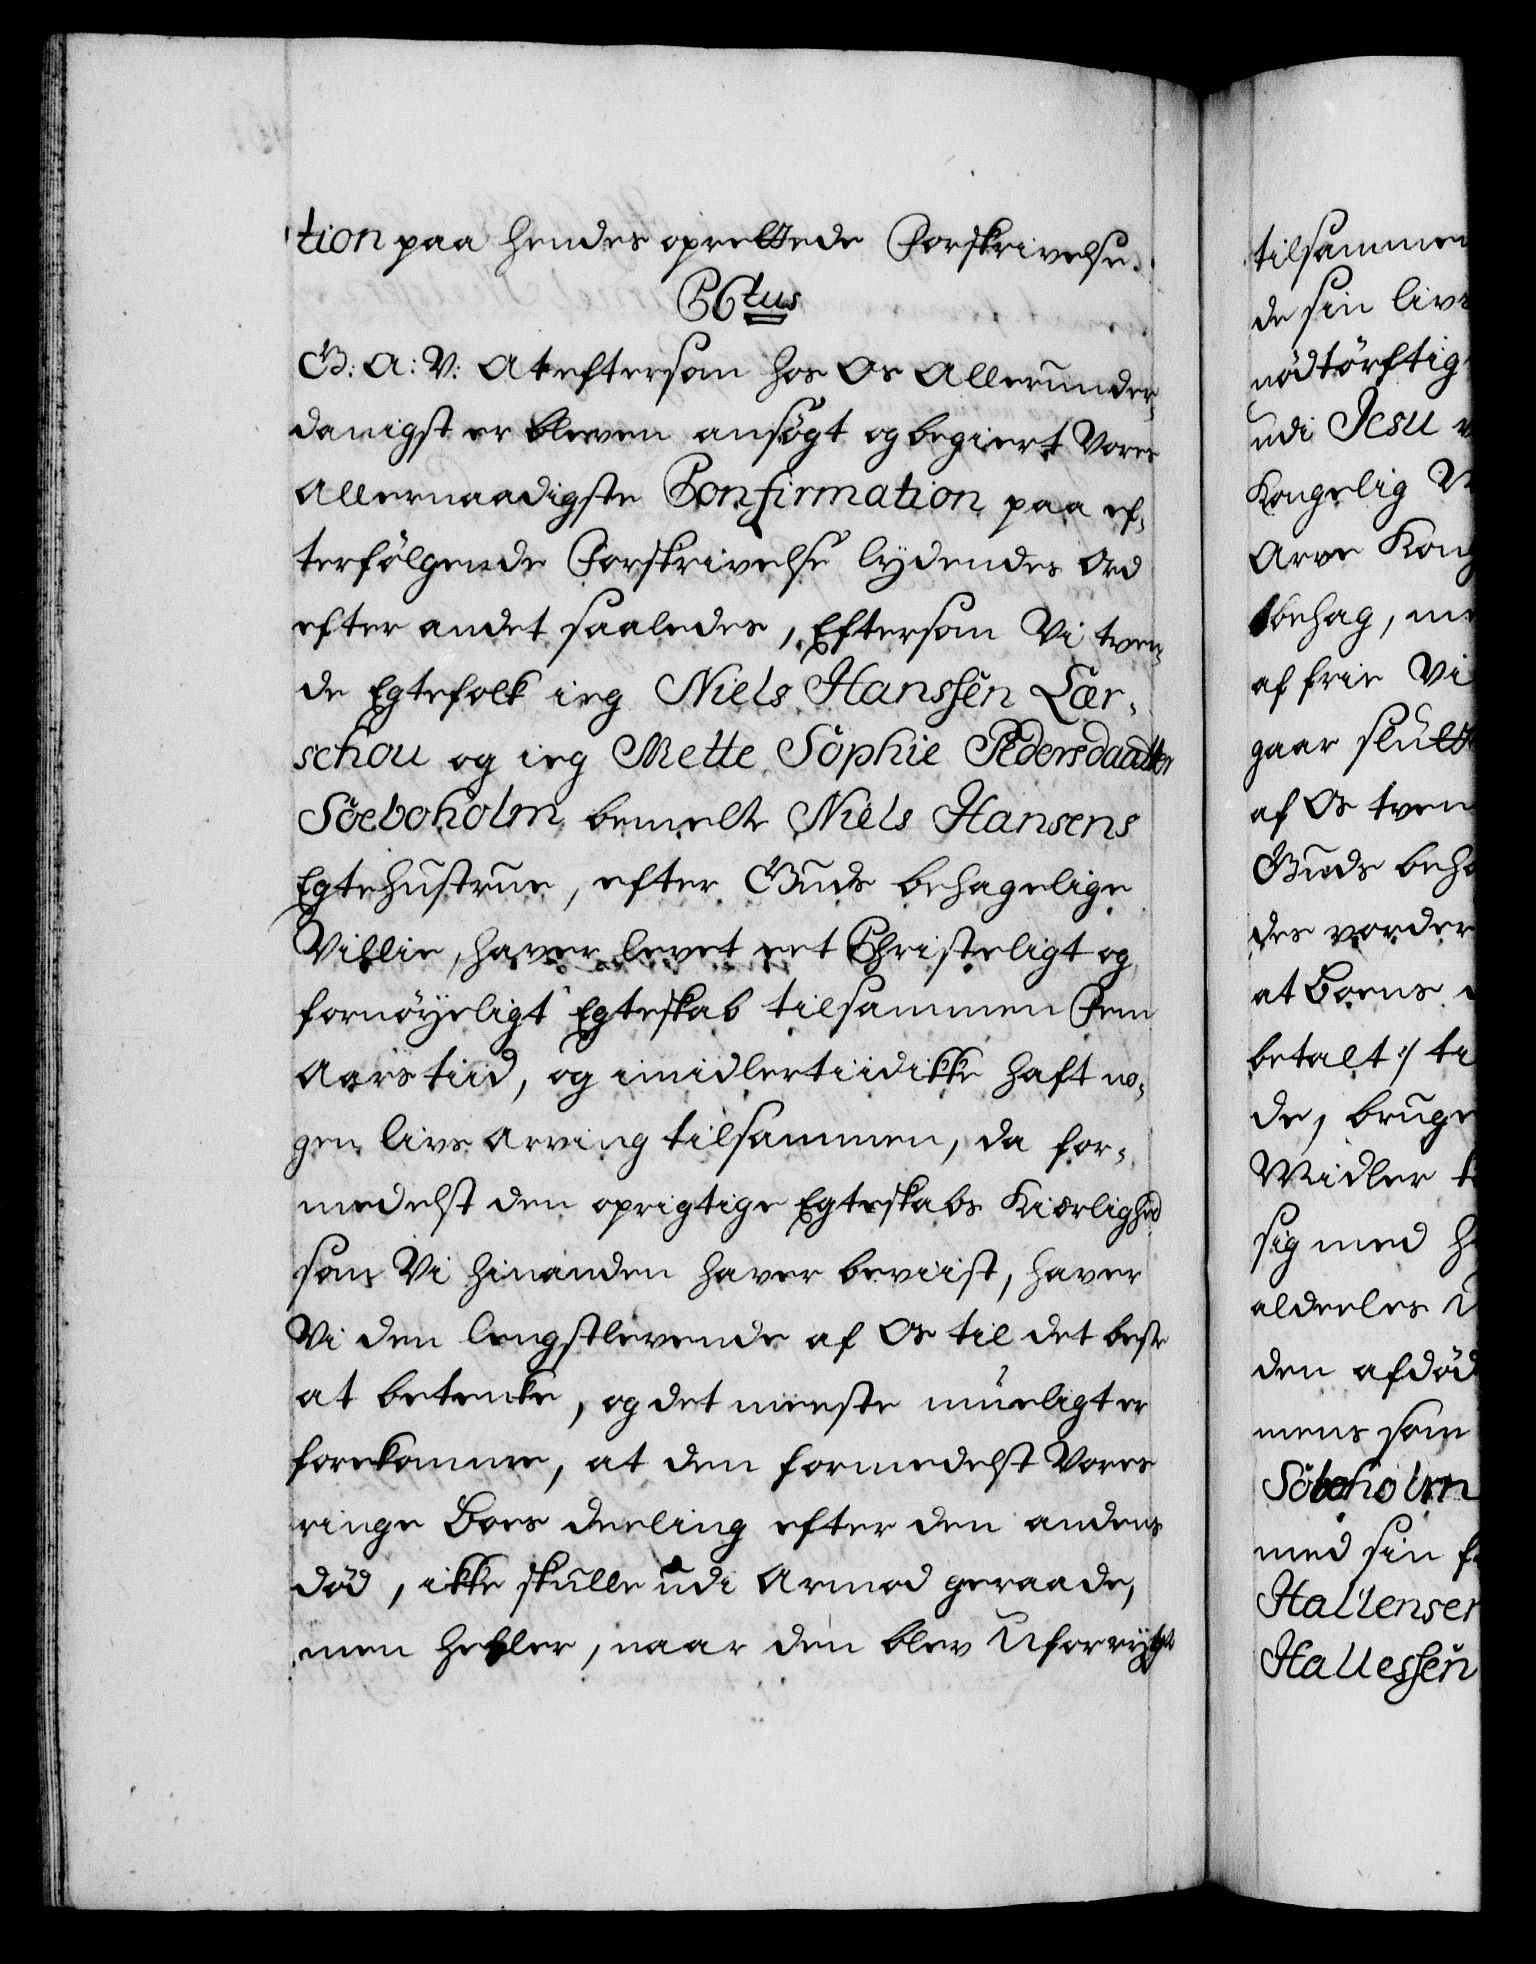 tion paa hendes oprettede Forskrivelse.
C6tus
G: A: V: At eftersom hos Os Allerunder-
danigst er bleven ansøgt og begiert Vores
Allernaadigste Confirmation paa ef-
terfölgende Forskrivelse lydendes Ord
efter andet saaledes, Eftersom Vi tven-
de Egtefolk ieg Niels Hanssen Lær-
schou og ieg Mette Sophie Pedersdaatter
Söeboholm bemelte Niels Hansens
Egtehustrue, efter Guds behagelige
Villie, haver levet eet Christeligt og
fornöyeligt Egteskab tilsammen Fem
Aars tiid, og imidlertiid ikke haft no-
gen livs Arving tilsammen, da for-
medelst den oprigtige Egteskabs Kiærlighed
som Vi hinanden haver beviist, haver
Vi den lengstlevende af Os til det beste
at betenke, og det meeste mueligt er
forekomme, at den formedelst Vores
ringe Boes deeling efter den andens
död, ikke skulle udi Armod geraade,
men heller, naar den blev Uforrygt
tilsammen
de sin livs
nödtörftig
udi Jesu
Kongelig
Arve Kong
behag,
af frie Vi
gaar slutte
af Os tven
Guds beha
des vorder
at Boens
betalt :/ ti
de, bruge
Midler
sig med
alderles
den afdöd
mens som
Söboholm
med sin
Hallensen
Hallessen